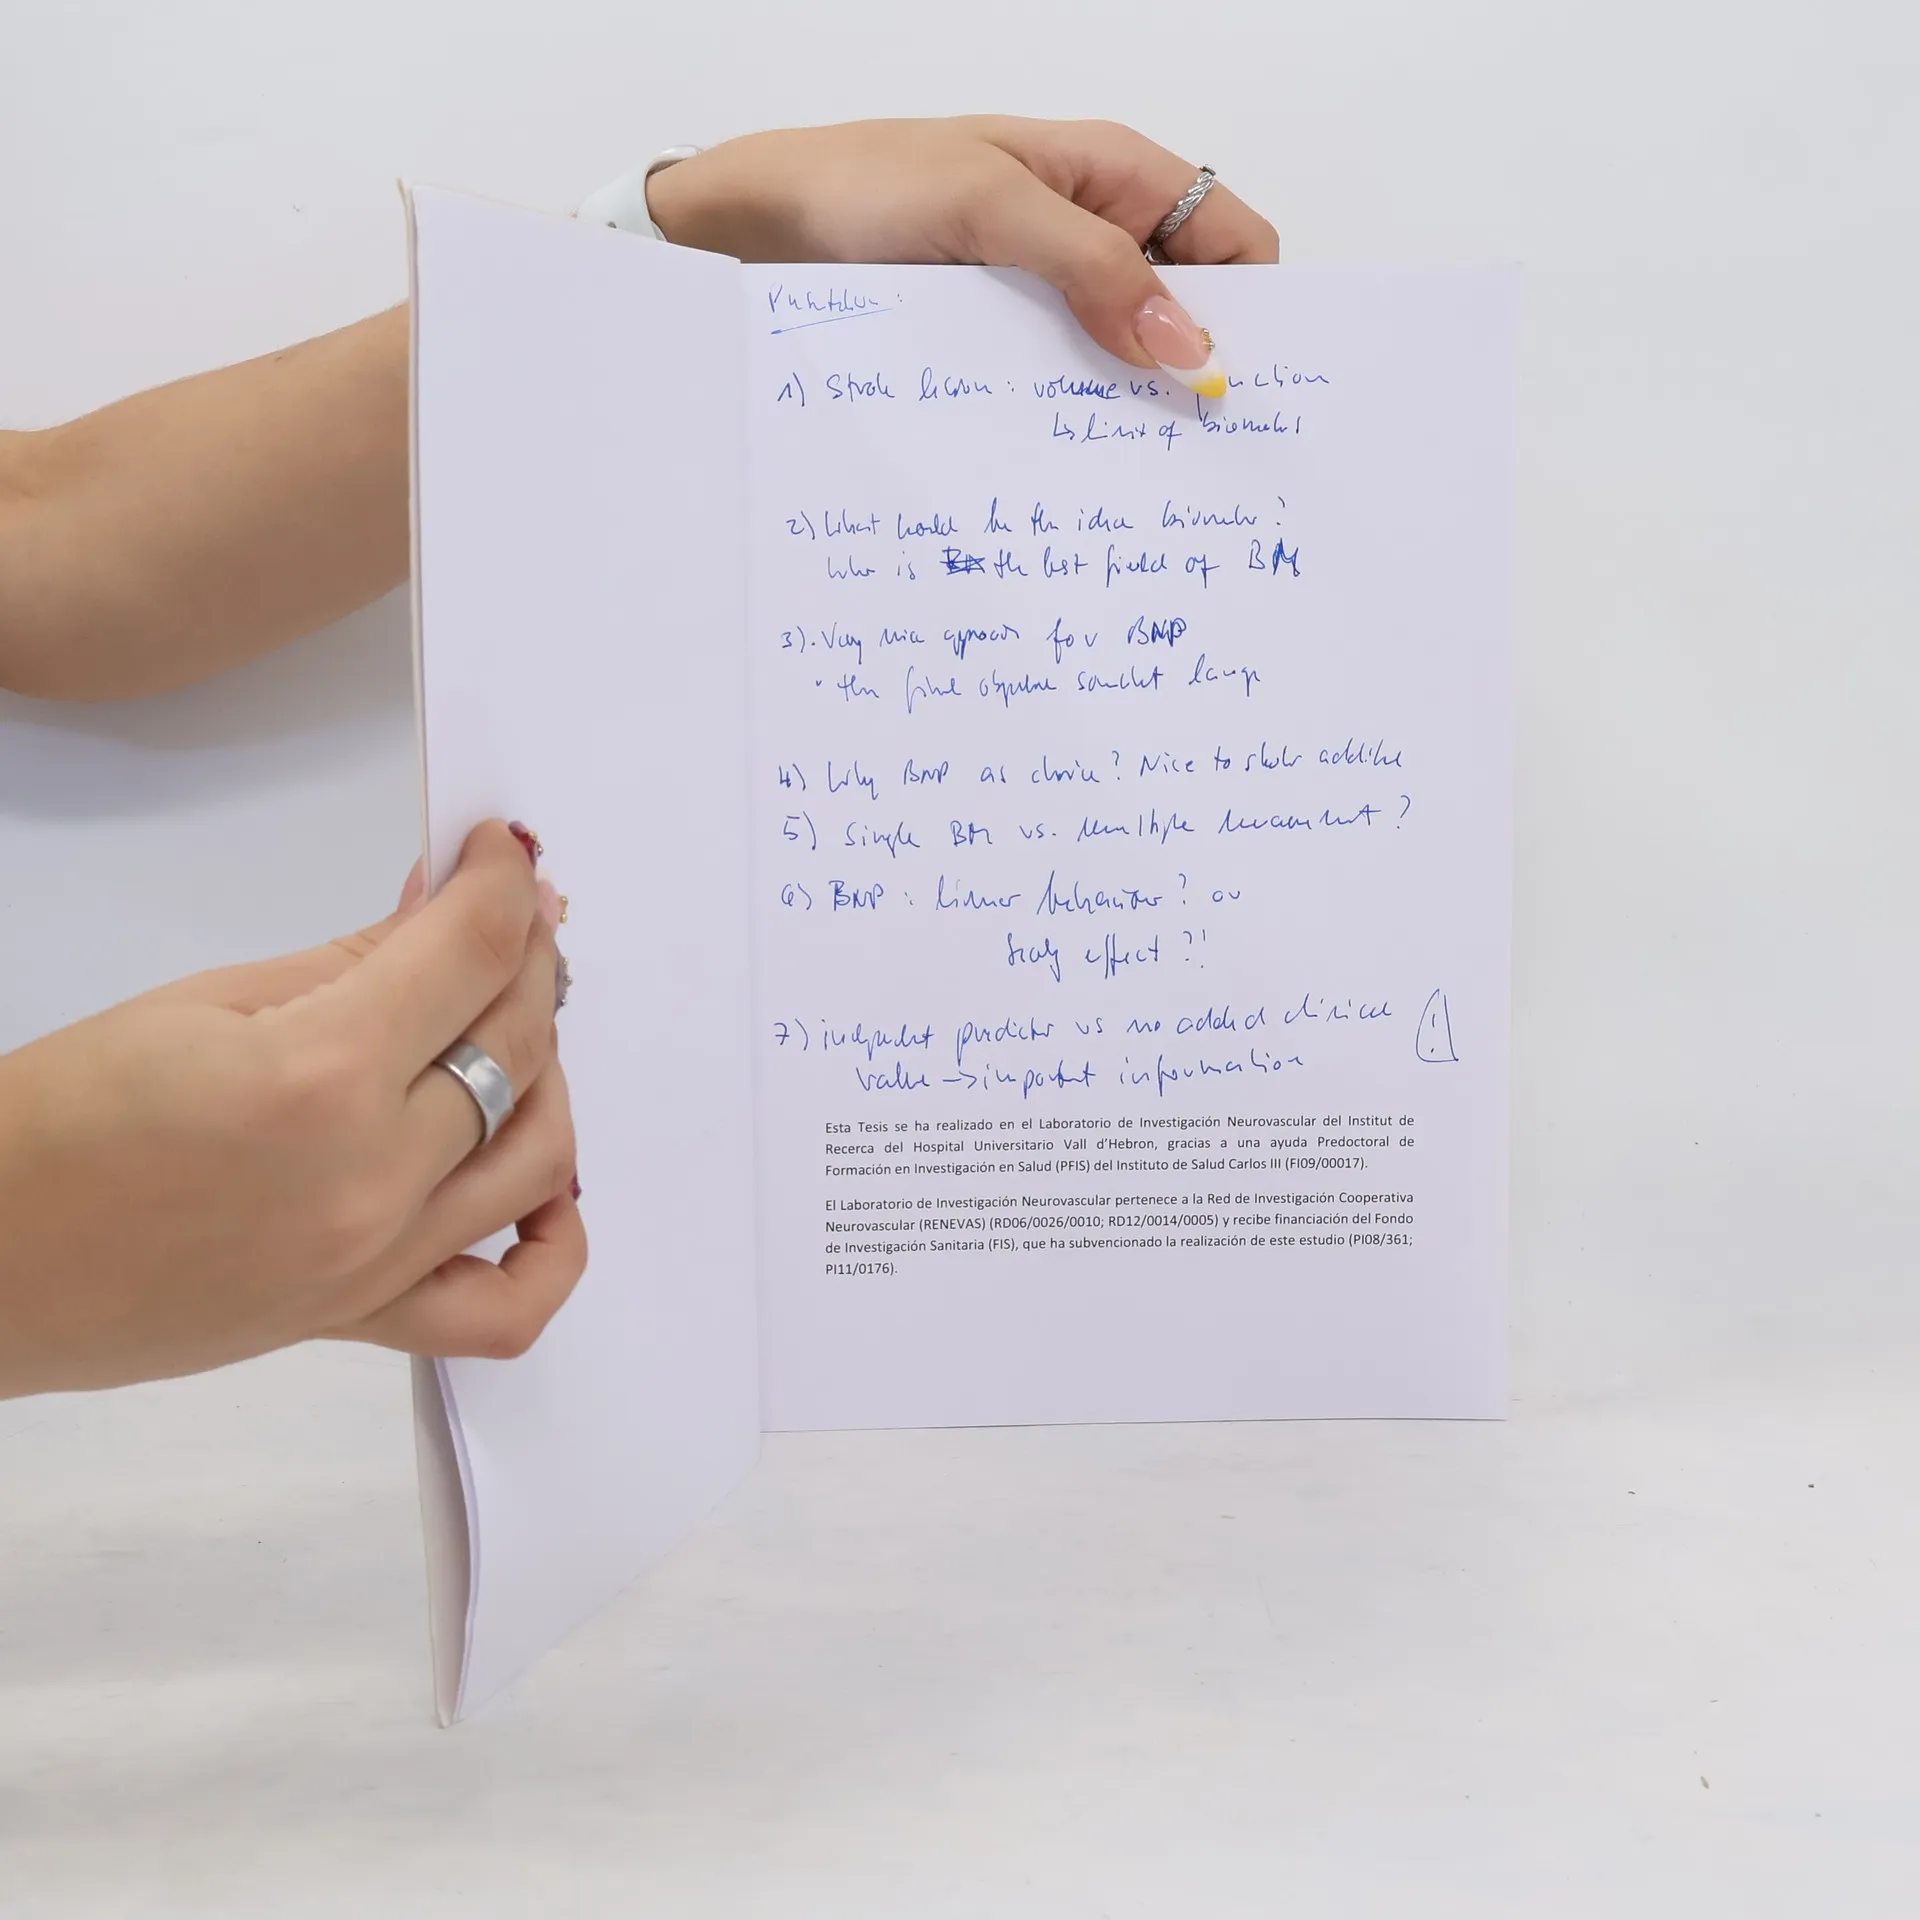 1) Stroke lesion : volume vs.
↳ limit of
2) What would be the idea
is the best field of BM
3). Very nice approach for BNP
• the final
4) Why BNP as choice? Nice to show
5) Single BM vs. multiple
6) BNP : linear behavior? or
effect ?!
7) independent predictor vs no added clinical
value → important information
Esta Tesis se ha realizado en el Laboratorio de Investigación Neurovascular del Institut de
Recerca del Hospital Universitario Vall d'Hebron, gracias a una ayuda Predoctoral de
Formación en Investigación en Salud (PFIS) del Instituto de Salud Carlos III (FI09/00017).
El Laboratorio de Investigación Neurovascular pertenece a la Red de Investigación Cooperativa
Neurovascular (RENEVAS) (RD06/0026/0010; RD12/0014/0005) y recibe financiación del Fondo
de Investigación Sanitaria (FIS), que ha subvencionado la realización de este estudio (PI08/361;
PI11/0176).